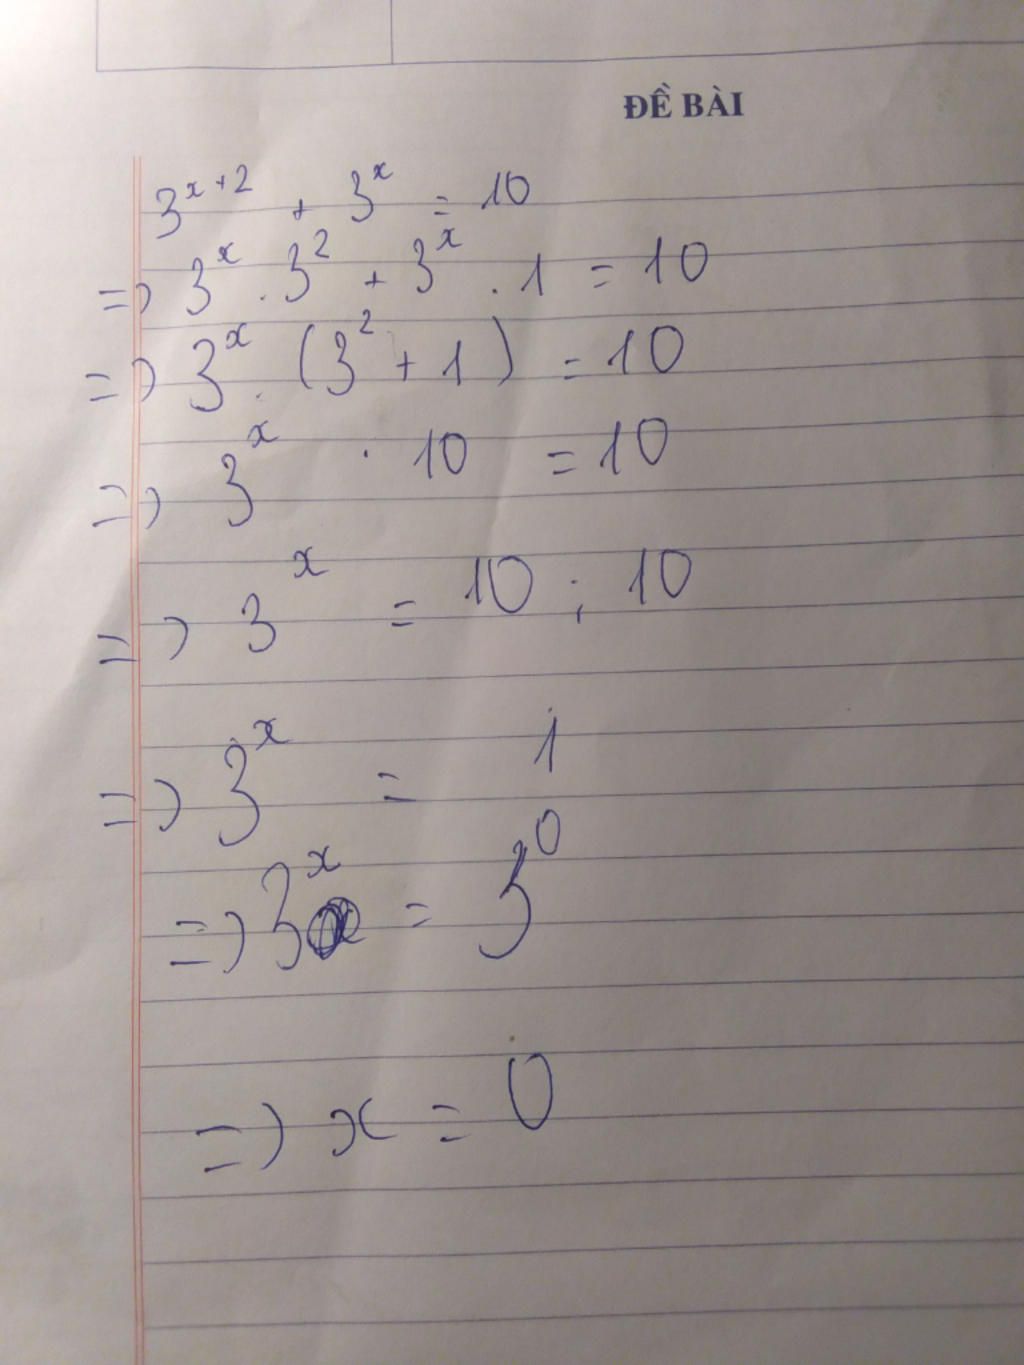 ĐỀ BÀI
3^{x+2} + 3^x = 10
=> 3^x . 3^2 + 3^x . 1 = 10
=> 3^x . (3^2 + 1) = 10
=> 3^x . 10 = 10
=> 3^x = 10 : 10
=> 3^x = 1
=> 3^x = 3^0
=> x = 0